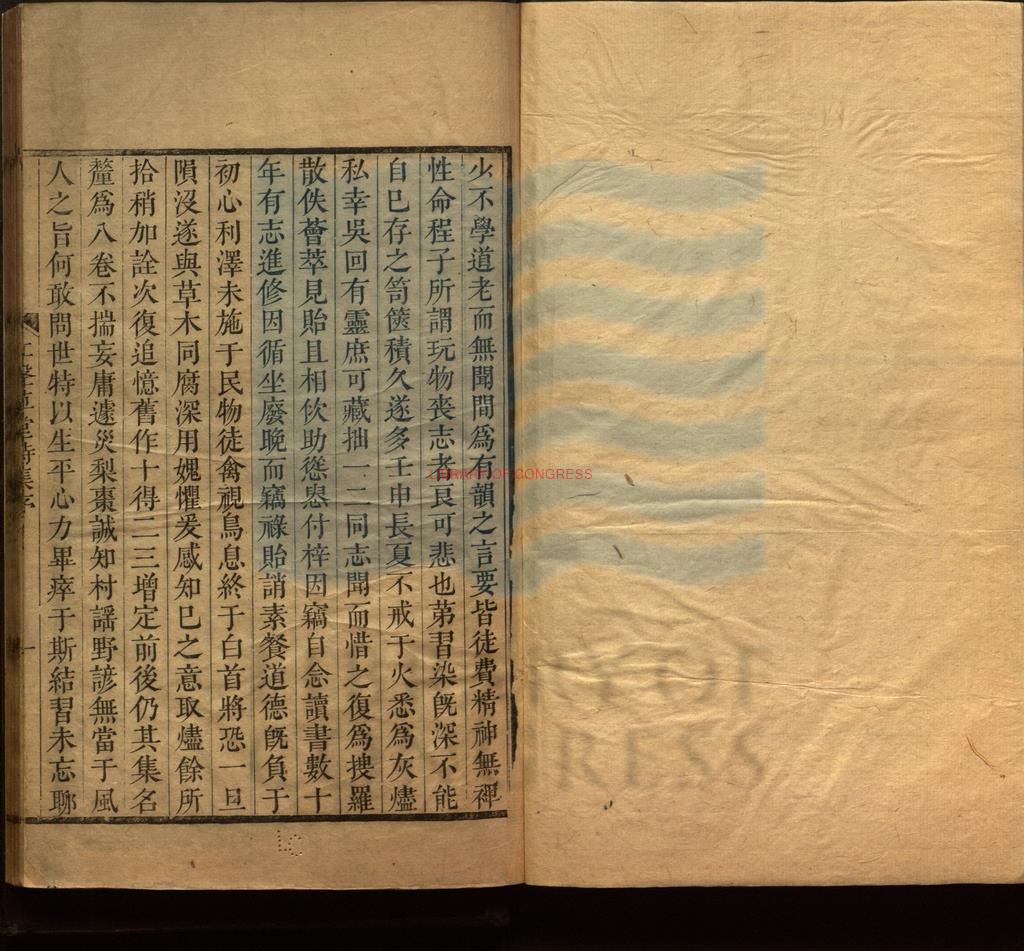 少不學道老而無聞間爲有韻之言要皆徒費精神無禆
性命程子所謂玩物喪志者良可悲也苐習染旣深不能
自巳存之笥篋積久遂多壬申長夏不戒于火悉爲灰燼
私幸吳回有靈庶可藏拙一二同志聞而惜之復爲捜羅
散佚薈萃見貽且相佽助慫恿付梓因竊自念讀書數十
年有志進修因循坐廢晚而竊祿貽誚素餐道德旣負于
初心利澤未施于民物徒禽視鳥息終于白首將恐一旦
隕沒遂與草木同腐深用媿懼爰感知巳之意取燼餘所
拾稍加詮次復追憶舊作十得二三增定前後仍其集名
釐爲八卷不揣妄庸遽災梨棗誠知村謡野諺無當于風
人之旨何敢問世特以生平心力畢瘁于斯結習未忘聊
草堂詩集序
一
LIBRARY OF CONGRESS
LC